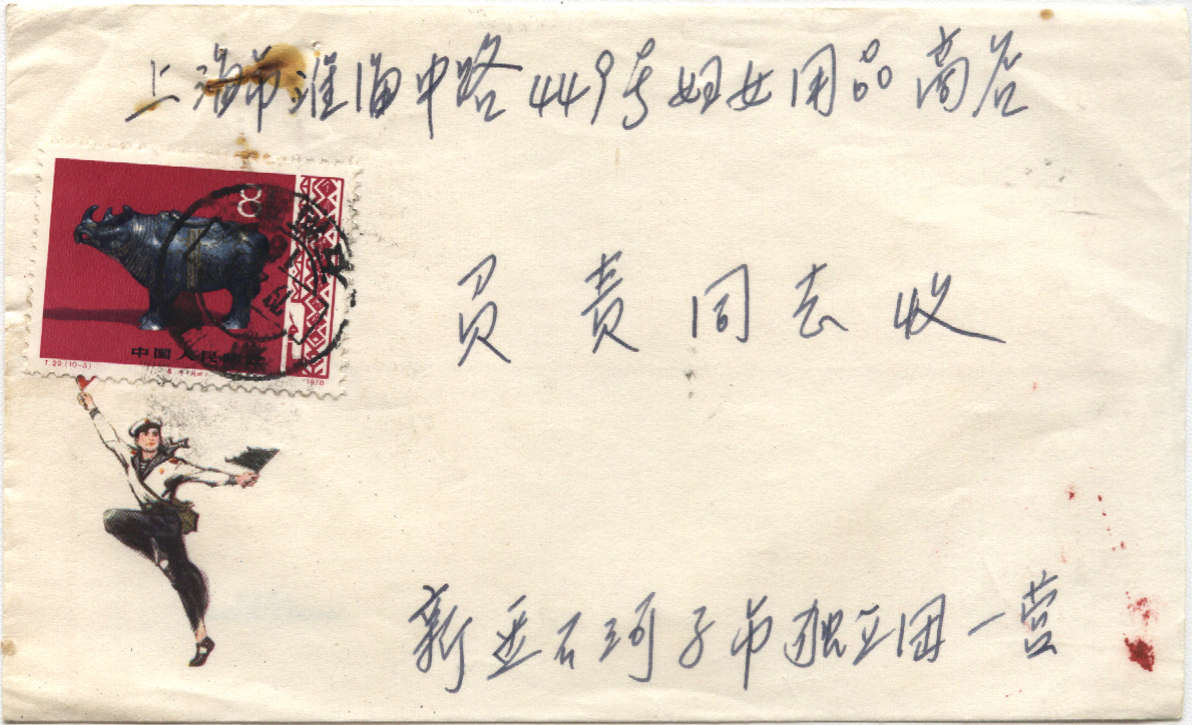 上海市淮海中路449号妇女用品商店
8
中国人民邮政
T.29.(10-3)
1978
负责同志收
新疆石河子市独立团一营